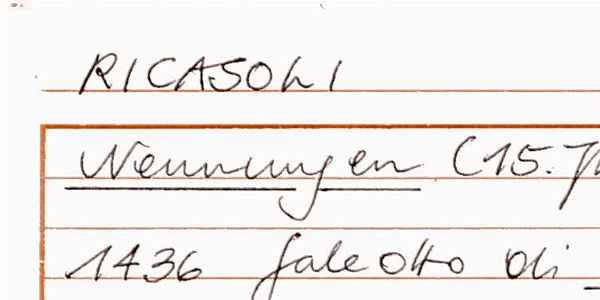 RICASOLI
Nennungen (15. Jh
1436 Galeotto di